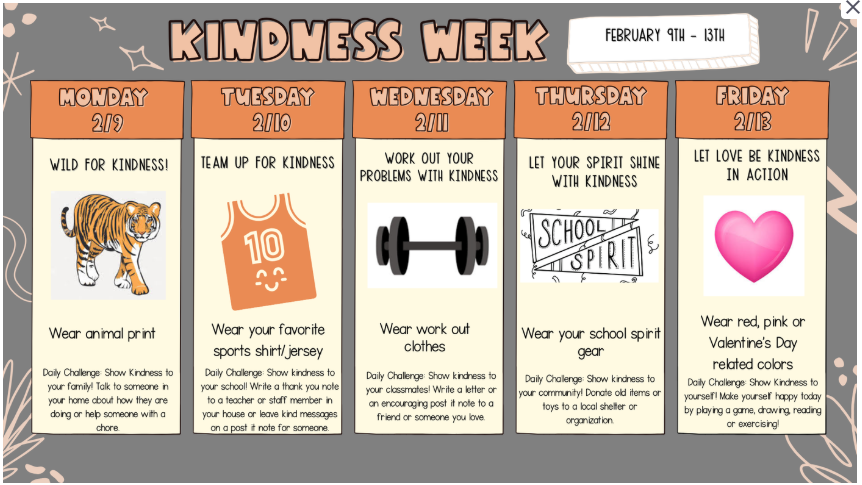 KINDNESS WEEK
FEBRUARY 9TH - 13TH
MONDAY
2/9
WILD FOR KINDNESS!
Wear animal print
Daily Challenge: Show Kindness to
your family! Talk to someone in
your home about how they are
doing or help someone with a
chore.
TUESDAY
2/10
TEAM UP FOR KINDNESS
10
Wear your favorite
sports shirt/jersey
Daily Challenge: Show kindness to
your school! Write a thank you note
to a teacher or staff member in
your house or leave kind messages
on a post it note for someone.
WEDNESDAY
2/11
WORK OUT YOUR
PROBLEMS WITH KINDNESS
Wear work out
clothes
Daily Challenge: Show kindness to
your classmates! Write a letter or
an encouraging post it note to a
friend or someone you love.
THURSDAY
2/12
LET YOUR SPIRIT SHINE
WITH KINDNESS
SCHOOL
SPIRIT
Wear your school spirit
gear
Daily Challenge: Show kindness to
your community! Donate old items or
toys to a local shelter or
organization.
FRIDAY
2/13
LET LOVE BE KINDNESS
IN ACTION
Wear red, pink or
Valentine's Day
related colors
Daily Challenge: Show Kindness to
yourself! Make yourself happy today
by playing a game, drawing, reading
or exercising!